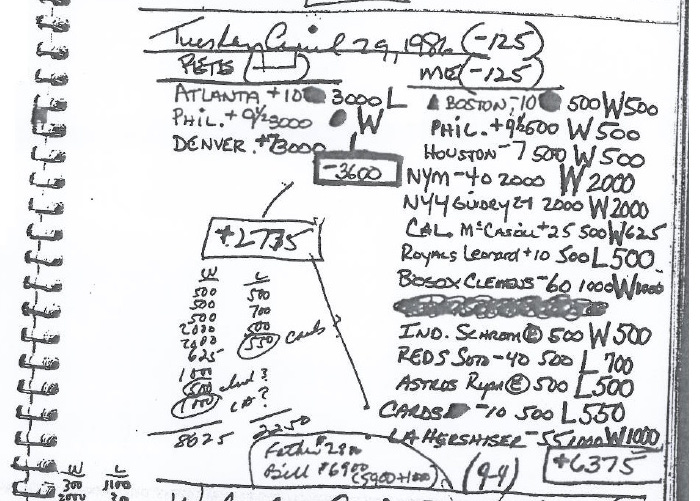 Tuesday April 29, 1986 (-125)
PETE
ATLANTA +10 3000 L
PHIL. + 9½ 3000 W
DENVER. +7 3000
-3600
+2735
W L
500 500
500 700
500 500
2000 550 Cards?
2000
625
1000
500 Ind?
1000 LA?
8625 2250
Father 2800
Bill $6900
(5900+1000)
ME (-125)
BOSTON -10 500 W 500
PHIL. +9½ 500 W 500
HOUSTON -7 500 W 500
NYM -40 2000 W 2000
NYY GUIDRY 2000 W 2000
CAL McCaskill +25 500 W 625
Royals Leonard +10 500 L 500
BOSOX CLEMENS -60 1000 W 1000
IND. SCHROM Ⓔ 500 W 500
REDS Soto -40 500 L 700
ASTROS Ryan Ⓔ 500 L 500
CARDS -10 500 L 550
LA HERSHISER -55 1000 W 1000
(9-4) +6375
W L
300 1100
2000